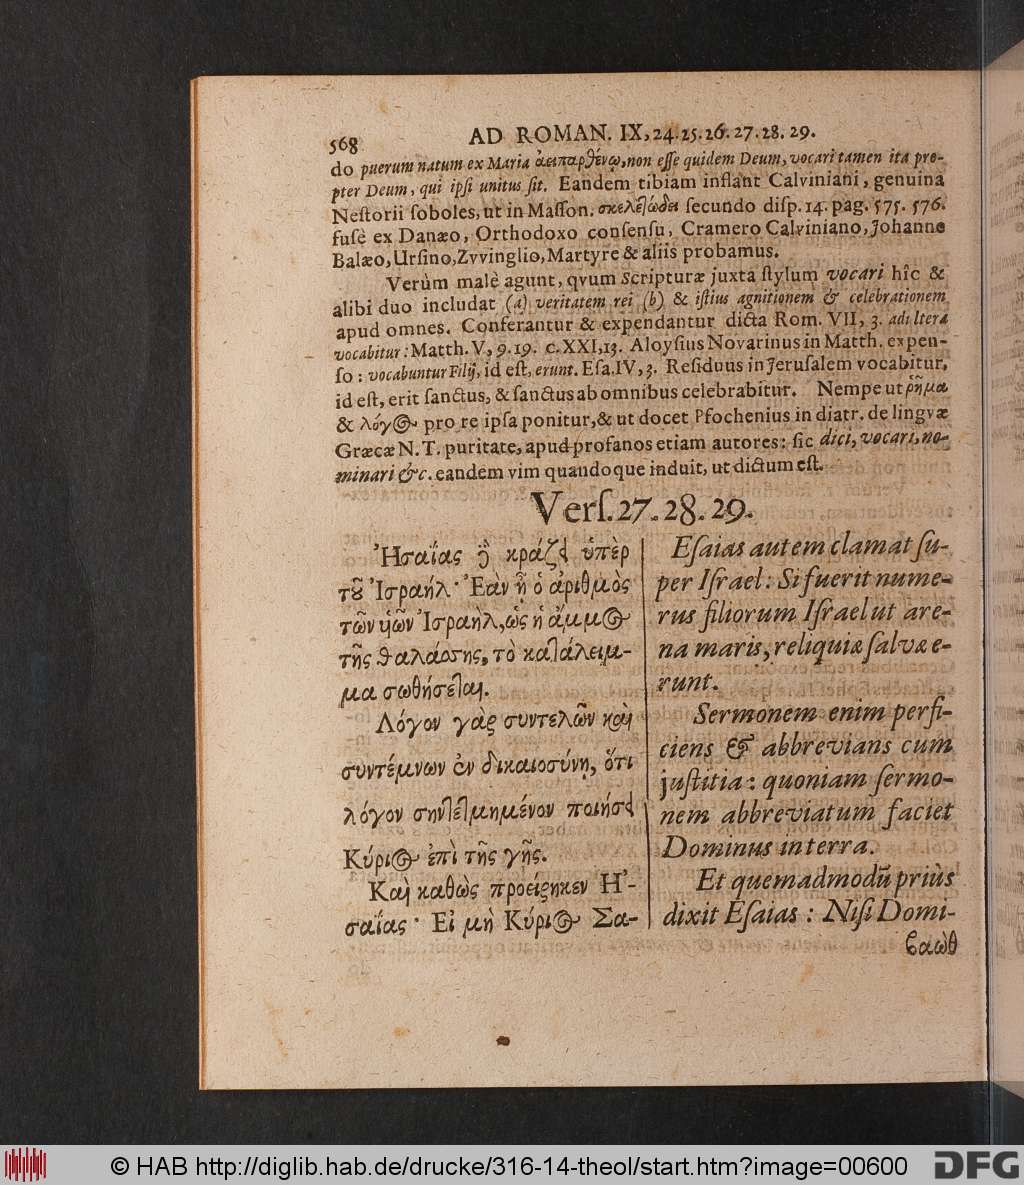 568 AD ROMAN. IX, 24. 25. 26. 27. 28. 29.
do puerum natum ex Maria ἀειπαρθένῳ, non eſſe quidem Deum, vocari tamen ita pro-
pter Deum, qui ipſi unitus ſit. Eandem tibiam inflant Calviniani, genuina
Neſtorii ſoboles, ut in Maſſon. σκελετώδει ſecundo diſp. 14. pag. 575. 576.
fuſè ex Danæo, Orthodoxo conſenſu, Cramero Calviniano, Johanne
Balæo, Urſino, Zvvinglio, Martyre & aliis probamus.
Verùm malè agunt, qvum Scripturæ juxta ſtylum vocari hîc &
alibi duo includat (a) veritatem rei (b) & iſtius agnitionem & celebrationem
apud omnes. Conferantur & expendantur dicta Rom. VII, 3. adultera
vocabitur: Matth. V, 9. 19. c. XXI, 13. Aloyſius Novarinus in Matth. expen-
ſo: vocabuntur Filij, id eſt, erunt. Eſa. IV, 3. Reſiduus in Jeruſalem vocabitur,
id eſt, erit ſanctus, & ſanctus ab omnibus celebrabitur. Nempe ut ῥῆμα
& λόγος pro re ipſa ponitur, & ut docet Pfochenius in diatr. de lingvæ
Græcæ N. T. puritate, apud profanos etiam autores: ſic dici, vocari, no-
minari &c. eandem vim quandoque induit, ut dictum eſt.
Verſ. 27. 28. 29.
Ἠσαΐας δὲ κράζει ὑπὲρ
τοῦ Ἰσραήλ· Ἐὰν ᾖ ὁ ἀριθμὸς
τῶν υἱῶν Ἰσραὴλ, ὡς ἡ ἄμμος
τῆς θαλάσσης, τὸ κατάλειμ-
μα σωθήσεται.
Λόγον γὰρ συντελῶν καὶ
συντέμνων ἐν δικαιοσύνῃ, ὅτι
λόγον συντετμημένον ποιήσει
Κύριος ἐπὶ τῆς γῆς.
Καὶ καθὼς προείρηκεν Ἠ-
σαΐας· Εἰ μὴ Κύριος Σα-
Eſaias autem clamat ſu-
per Iſrael: Si fuerit nume-
rus filiorum Iſrael ut are-
na maris, reliquiæ ſalvæ e-
runt.
Sermonem enim perfi-
ciens & abbrevians cum
juſtitia: quoniam ſermo-
nem abbreviatum faciet
Dominus in terra.
Et quemadmodū priùs
dixit Eſaias: Niſi Domi-
βαὼθ
© HAB http://diglib.hab.de/drucke/316-14-theol/start.htm?image=00600
DFG